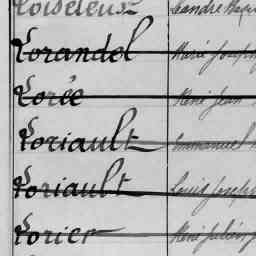 Loiseleux Léandre
Lorandel Marie Joseph
Lorée René Jean
Loriault Emmanuel
Loriault Louis Joseph
Lorier René Julien